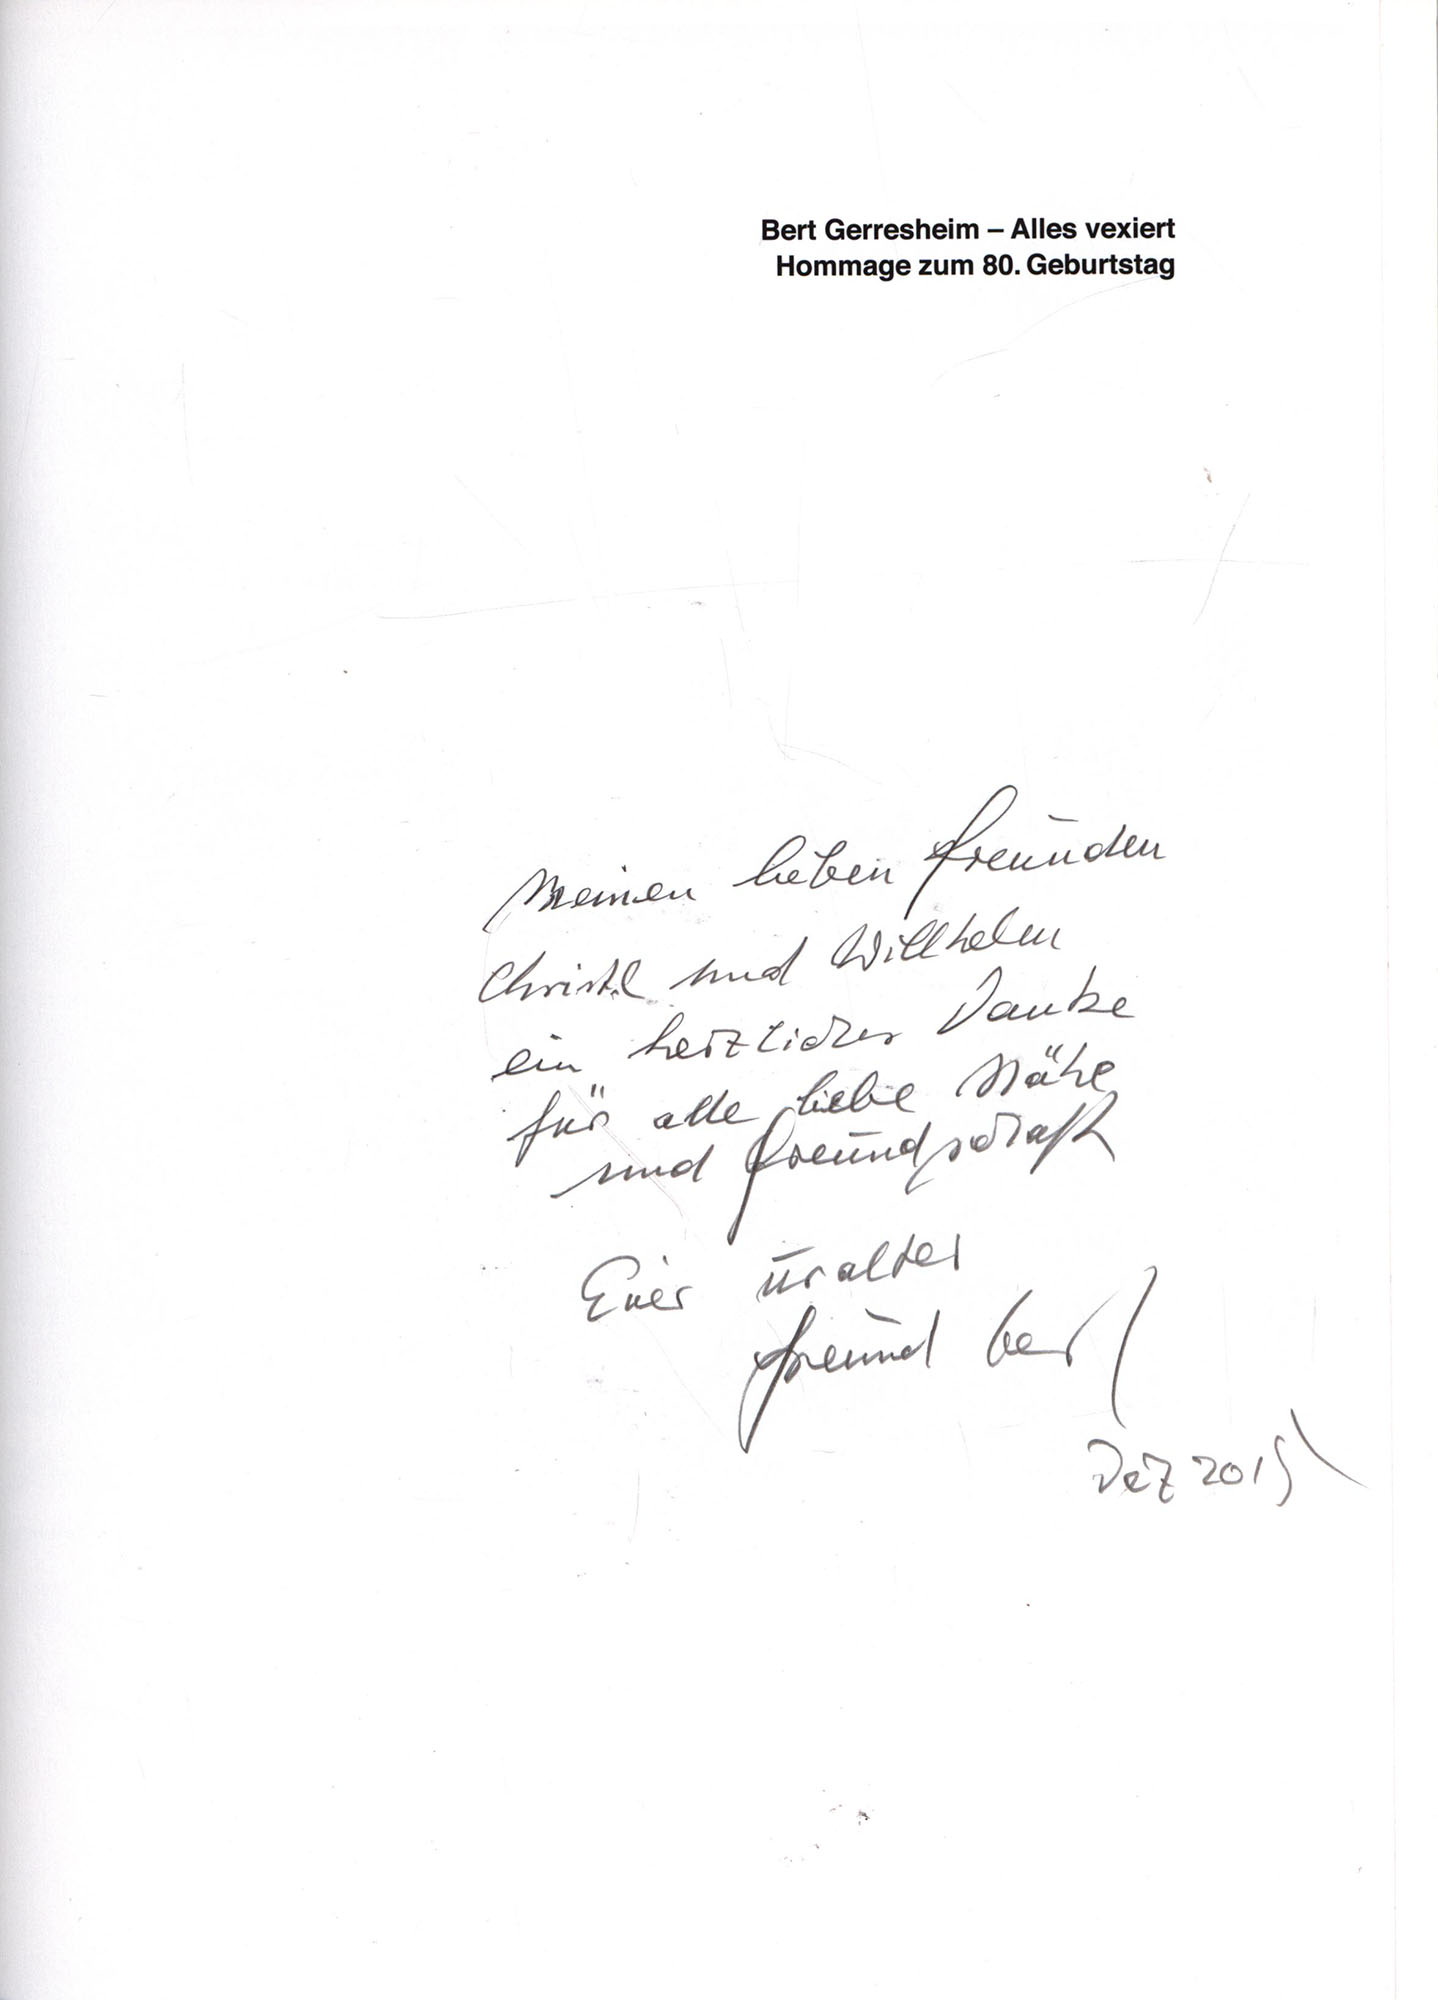 Bert Gerresheim – Alles vexiert
Hommage zum 80. Geburtstag
Meinen lieben Freunden
Christl und Willhelm
ein herzliches Danke
für alle liebe Nähe
und Freundschaft
Euer uralter
Freund Bert
Dez 2015